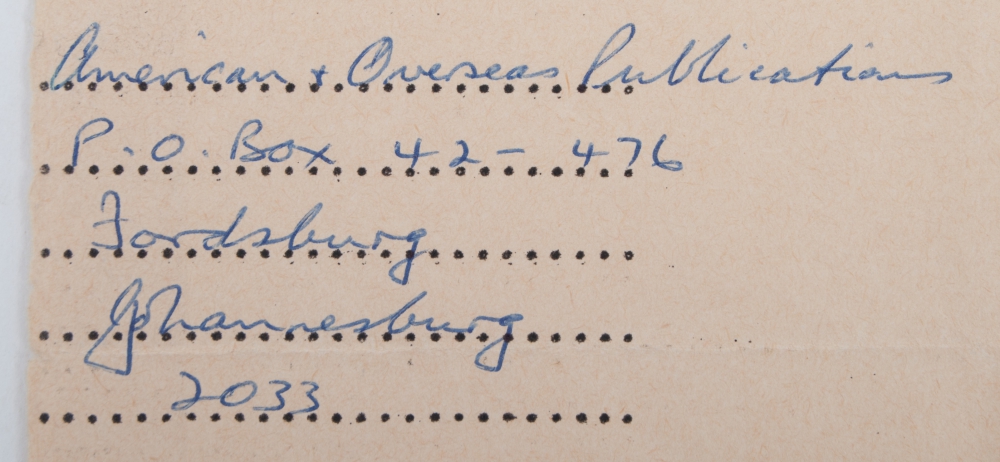 American + Overseas Publications
P.O. Box 42-476
Fordsburg
Johannesburg
2033